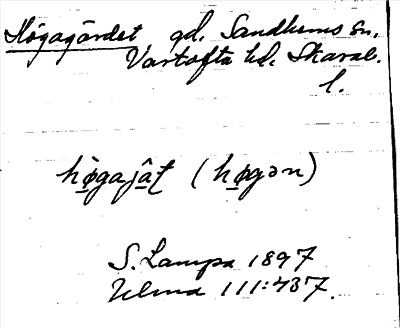 Högagärdet gd. Sandhems sn.
Vartofta hd. Skarab.
l.
hø̀gajâṭ (høgən)
S. Lampa 1897
Ulma 111:487.